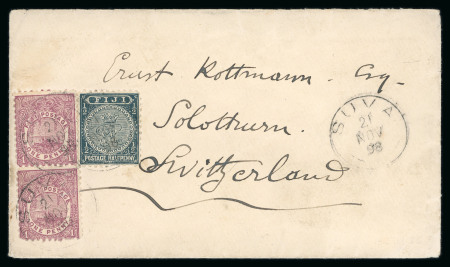 Ernst Rottmann Esq.
Solothurn
Switzerland
SUVA
21
NOV
98
FIJI
POSTAGE HALFPENNY
POSTAGE
ONE PENNY
POSTAGE
ONE PENNY